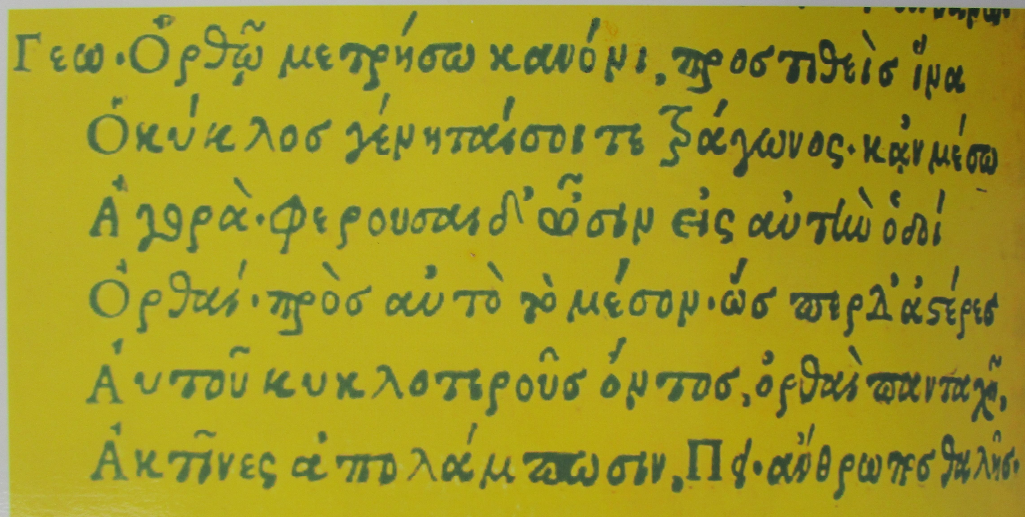 Γεω. Ὀρθῷ μετρήσω κανόνι, προστιθεὶς ἵνα
Ὁ κύκλος γένηταί σοι τετράγωνος. κἀν μέσω
Ἀγορὰ. φέρουσαι δ' ὦσιν εἰς αὐτὴν ὁδοί
Ὀρθαί. πρὸς αὐτὸ τὸ μέσον. ὥσπερ δ' ἀστέρες
Αὐτοῦ κυκλοτεροῦς ὄντος, ὀρθαὶ πανταχῆ,
Ἀκτῖνες ἀπολάμπωσιν, Πι. ἄνθρωπος θαλῆς.